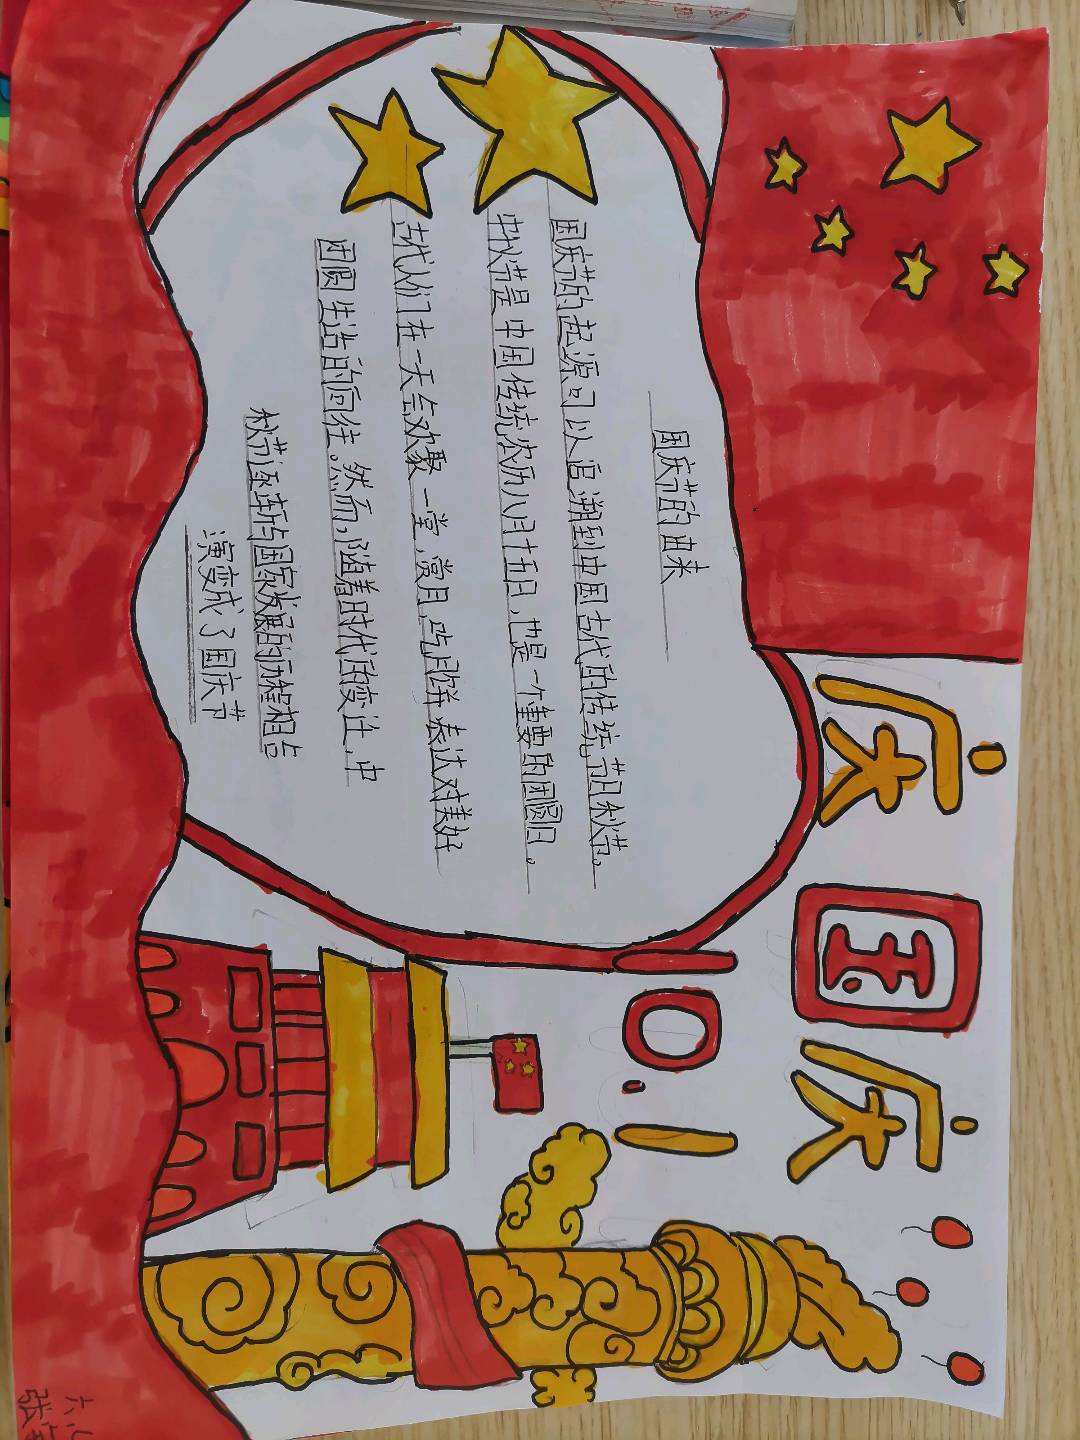 庆国庆
10.1
国庆节的由来
国庆节的起源可以追溯到中国古代的传统节日秋节。
中秋节是中国传统农历八月十五日，也是一个重要的团圆日。
古代人们在一天会欢聚一堂，赏月，吃月饼表达对美好
团圆生活的向往。然而，随着时代的变迁，中
秋节逐渐与国家发展的历程相占
演变成了国庆节
六
张